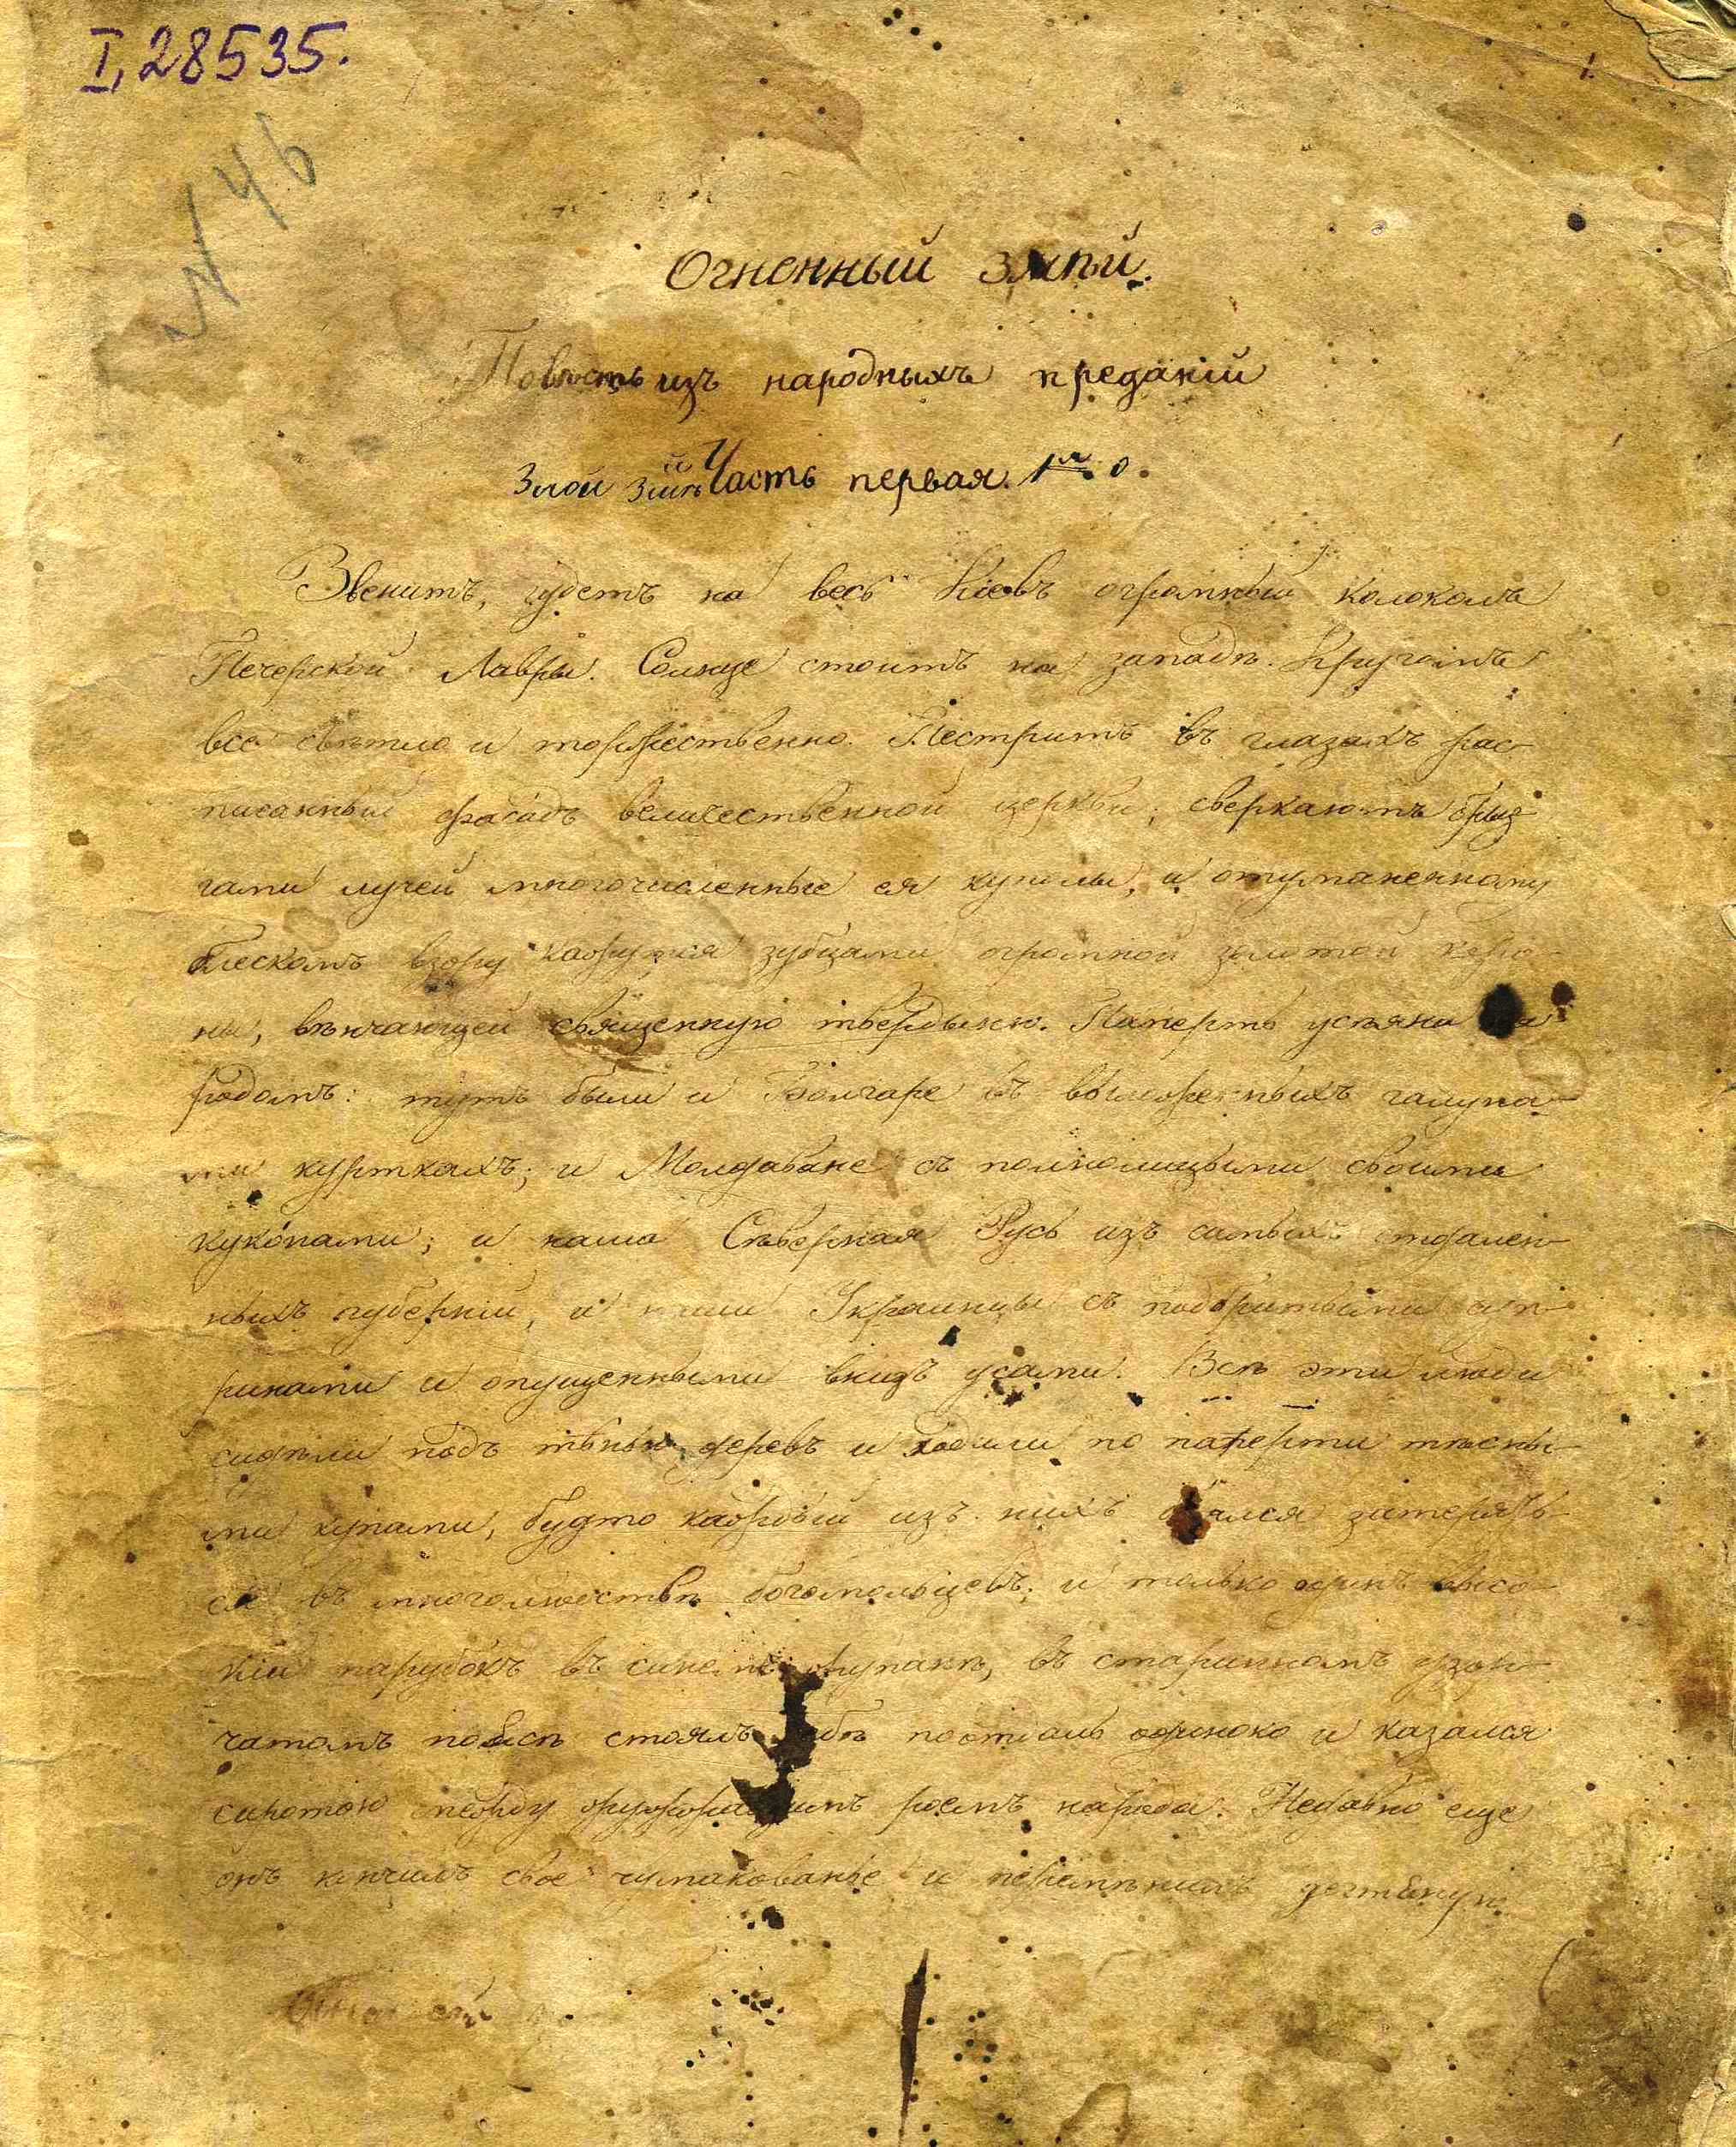 I, 28535.
1.
N 46
Огненный змѣй.
Повѣсть изъ народныхъ преданій
Злой Змѣй Часть первая.
Звенитъ, гудетъ на весь Кіевъ огромный колоколъ
Печерской Лавры. Солнце стоитъ на западѣ. Кругомъ
все свѣтло и торжественно. Пестритъ въ глазахъ рас-
писанный фасадъ величественной церкви; сверкаютъ брыз-
гами лучей многочисленные ея куполы, и отуманенному
блескомъ взору кажутся зубцами огромной золотой коро-
ны, вѣнчающей священную твердыню. Паперть усѣяна на-
родомъ: тутъ были и Болгаре въ выложенныхъ галуна-
ми курткахъ; и Молдаване съ полнолицыми своими
куко́нами; и наша Сѣверная Русь изъ самыхъ отдален-
ныхъ губерній, и наши Украинцы съ подбритыми чуп-
ринами и опущенными внизъ усами. Всѣ эти люди
сидѣли подъ тѣнью деревъ и ходили по паперти тѣсны-
ми купами, будто каждый изъ нихъ боялся затерять-
ся въ многолюдствѣ богомольцевъ; и только одинъ высо-
кій парубокъ въ синемъ жупанѣ, въ старинномъ узор-
чатомъ поясѣ стоялъ себѣ поотдаль одиноко и казался
сиротою между жужжащимъ роемъ народа. Недавно еще
онъ кончилъ свое чумакованье и перемѣнилъ дегтяную